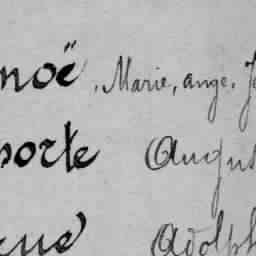 noë, Marie, ange, J
porte Augus
Adolph